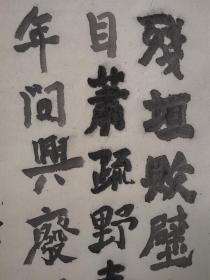 殘垣敗壁
目蕭疏野
年間興廢